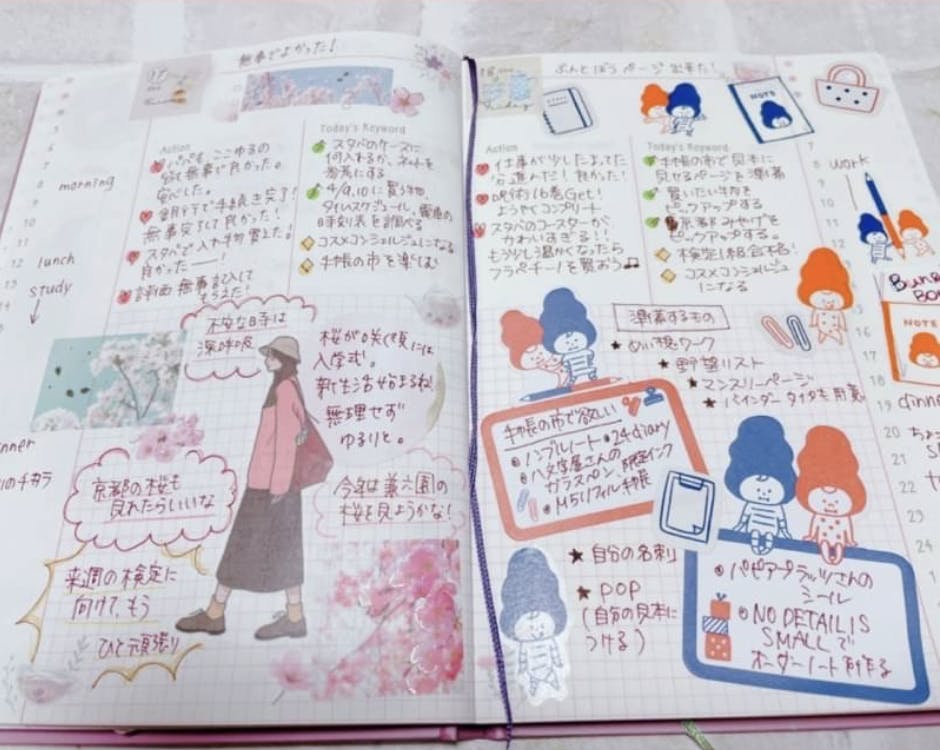 無事でよかった!
Action
無事で良かった。
安心した。
銀行で手続き完了!
無事完了して良かった!
スタバで入れ物買えた!
良かったーー!
評価無事記入して
もらえた!
Today's Keyword
スタバのケースに
何入れるか、ネットを
参考にする
4/9,10に買う物、
タイムスケジュール、電車の
時刻表を調べる
コスメコンシェルジュになる
手帳の市を楽しむ
morning
lunch
study
桜な日は
深呼吸
桜が咲く頃には
入学式。
新生活始まるね!
無理せず
ゆるりと。
京都の桜も
見れたらいいな
今年は兼六園の
桜を見ようかな!
来週の検定に
向けて、もう
ひと頑張り
のチカラ
ぶんとぼうページ出来た!
Action
仕事が少したまってた
分進んだ!良かった!
呪術16巻Get!
ようやくコンプリート
スタバのコースターが
かわいすぎる!!
もう少し温かくなったら
フラペチーノを買おう♫
Today's Keyword
手帳の市で見本に
見せるページを準備
買いたい手帖を
ピックアップする
東京駅みやげを
ピックアップする。
検定1級合格!
コスメコンシェルジュ
になる
NOTE
work
準備するもの
★ぬい撮ワーク
★野望リスト
★マンスリーページ
★バインダータイプも用意
手帳の市で欲しい
ノンブルノート 24diary
八文字屋さんの
ガラスペン 限定インク
M5リフィル手帳
★自分の名刺
★POP
(自分の見本に
つける)
パピアプラッツさんの
シール
NO DETAIL IS
SMALLで
オーダーノート作る
NOTE